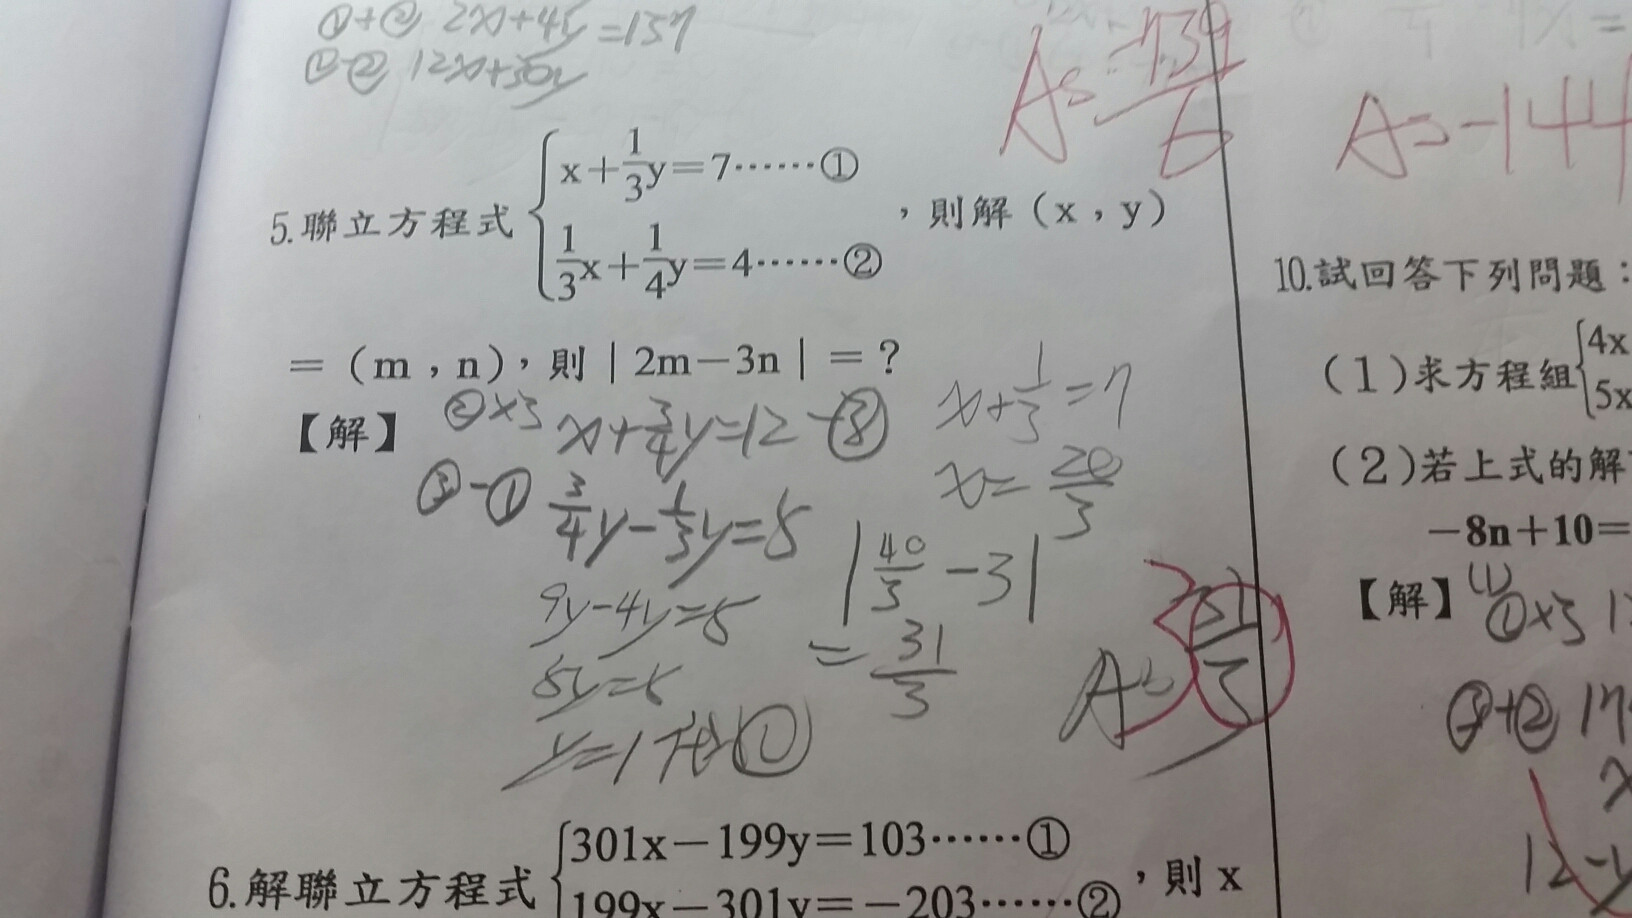 ①+② 2x+4y=157
①-② 12x+30y
A:=-739/6
A=-144
5.聯立方程式 { x+1/3y=7……①
1/3x+1/4y=4……② ，則解（x，y）
=（m，n），則｜2m－3n｜=？
【解】 ②×3 x+3/4y=12-③
③-① 3/4y-1/3y=5
9y-4y=5
5y=5
y=1代①
x+1/3=7
x=20/3
|40/3-3|
=31/3
A:31/3
6.解聯立方程式 { 301x－199y=103……①
199x－301y=－203……② ，則 x
10.試回答下列問題：
（1）求方程組{4x
5x
（2）若上式的解
－8n+10=
【解】(1)
①×3 1
③+② 17
x
12-y